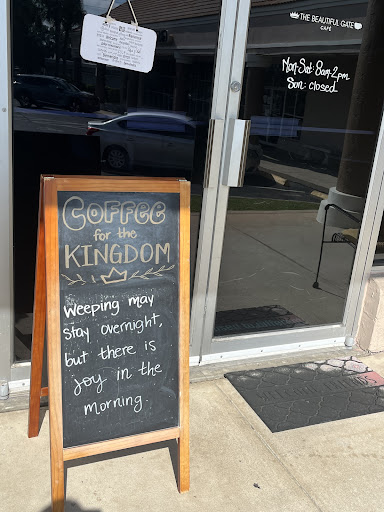 THE BEAUTIFUL GATE
CAFÉ
Mon-Sat: 8am-2pm
Sun: closed
COFFEE
for the
KINGDOM
Weeping may
stay overnight,
but there is
joy in the
morning.